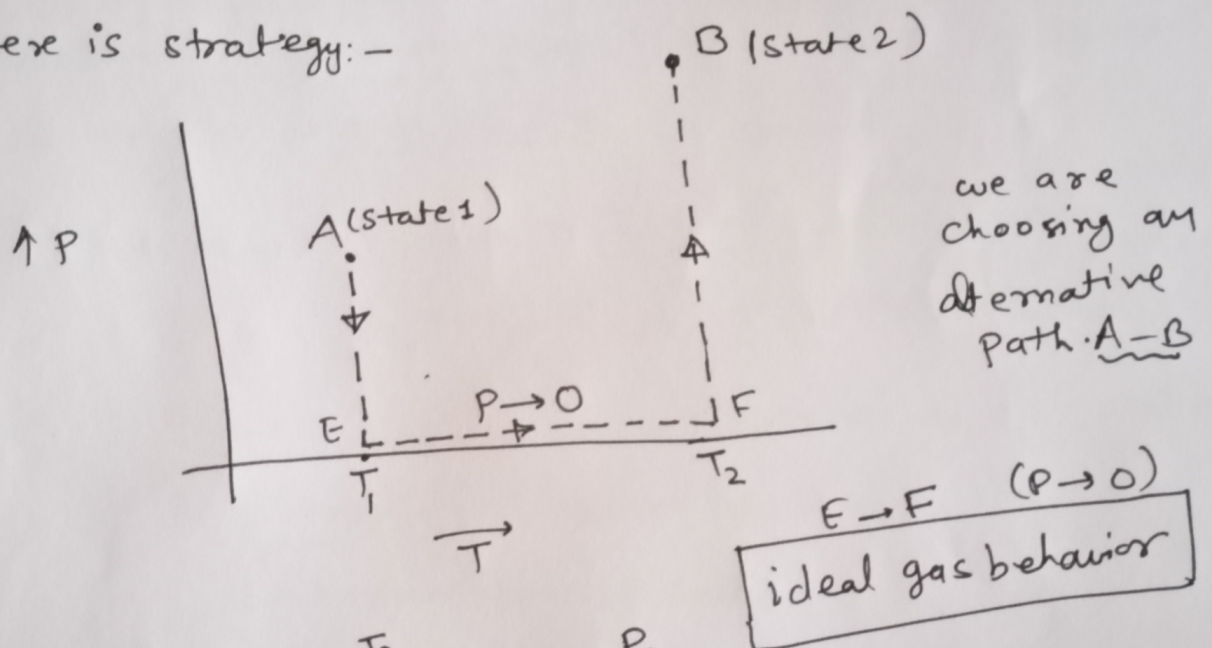 ere is strategy:-
B (state 2)
↑ P
A (state 1)
we are
choosing an
alternative
path. A-B
P → O
E
F
T1
T2
T
E → F (P → 0)
ideal gas behavior